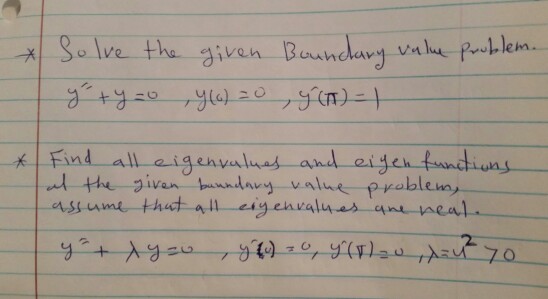 * Solve the given Boundary value problem.
y″ + y = 0 , y(0) = 0 , y′(π) = 1
* Find all eigenvalues and eigen functions
of the given boundary value problem,
assume that all eigenvalues are real.
y″ + λy = 0 , y′(0) = 0, y′(π) = 0 , λ = u² > 0